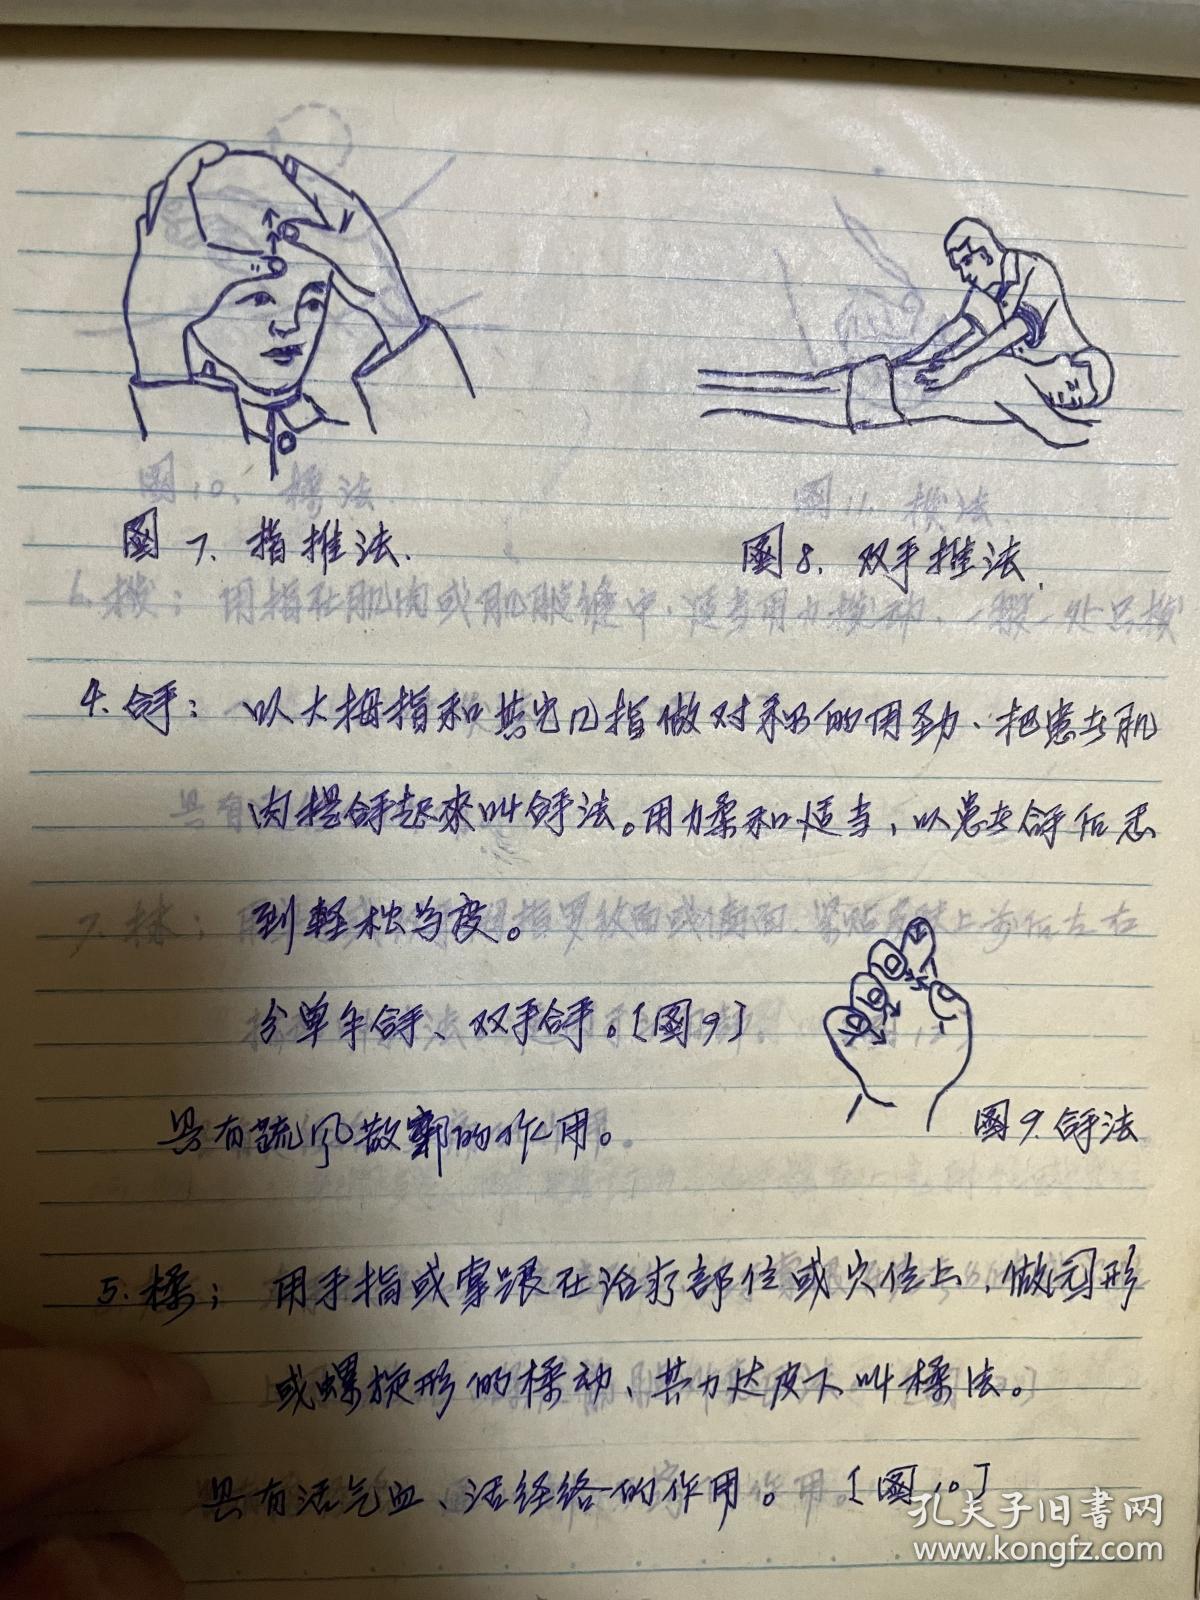 图7、指推法.
图8、双手推法.
4.拿： 以大拇指和其它几指做对称的用劲、把患者肌
肉提拿起來叫拿法。用力柔和适当、以患者拿后感
到轻松为度。
分单手拿、双手拿。[图9]
具有疏风散寒的作用。
图9.拿法
5.揉； 用手指或掌跟在治疗部位或穴位上、做园形
或螺旋形的揉动、其力达皮下叫揉法。
具有活气血、活经络的作用。[图10]
孔夫子旧书网
www.kongfz.com